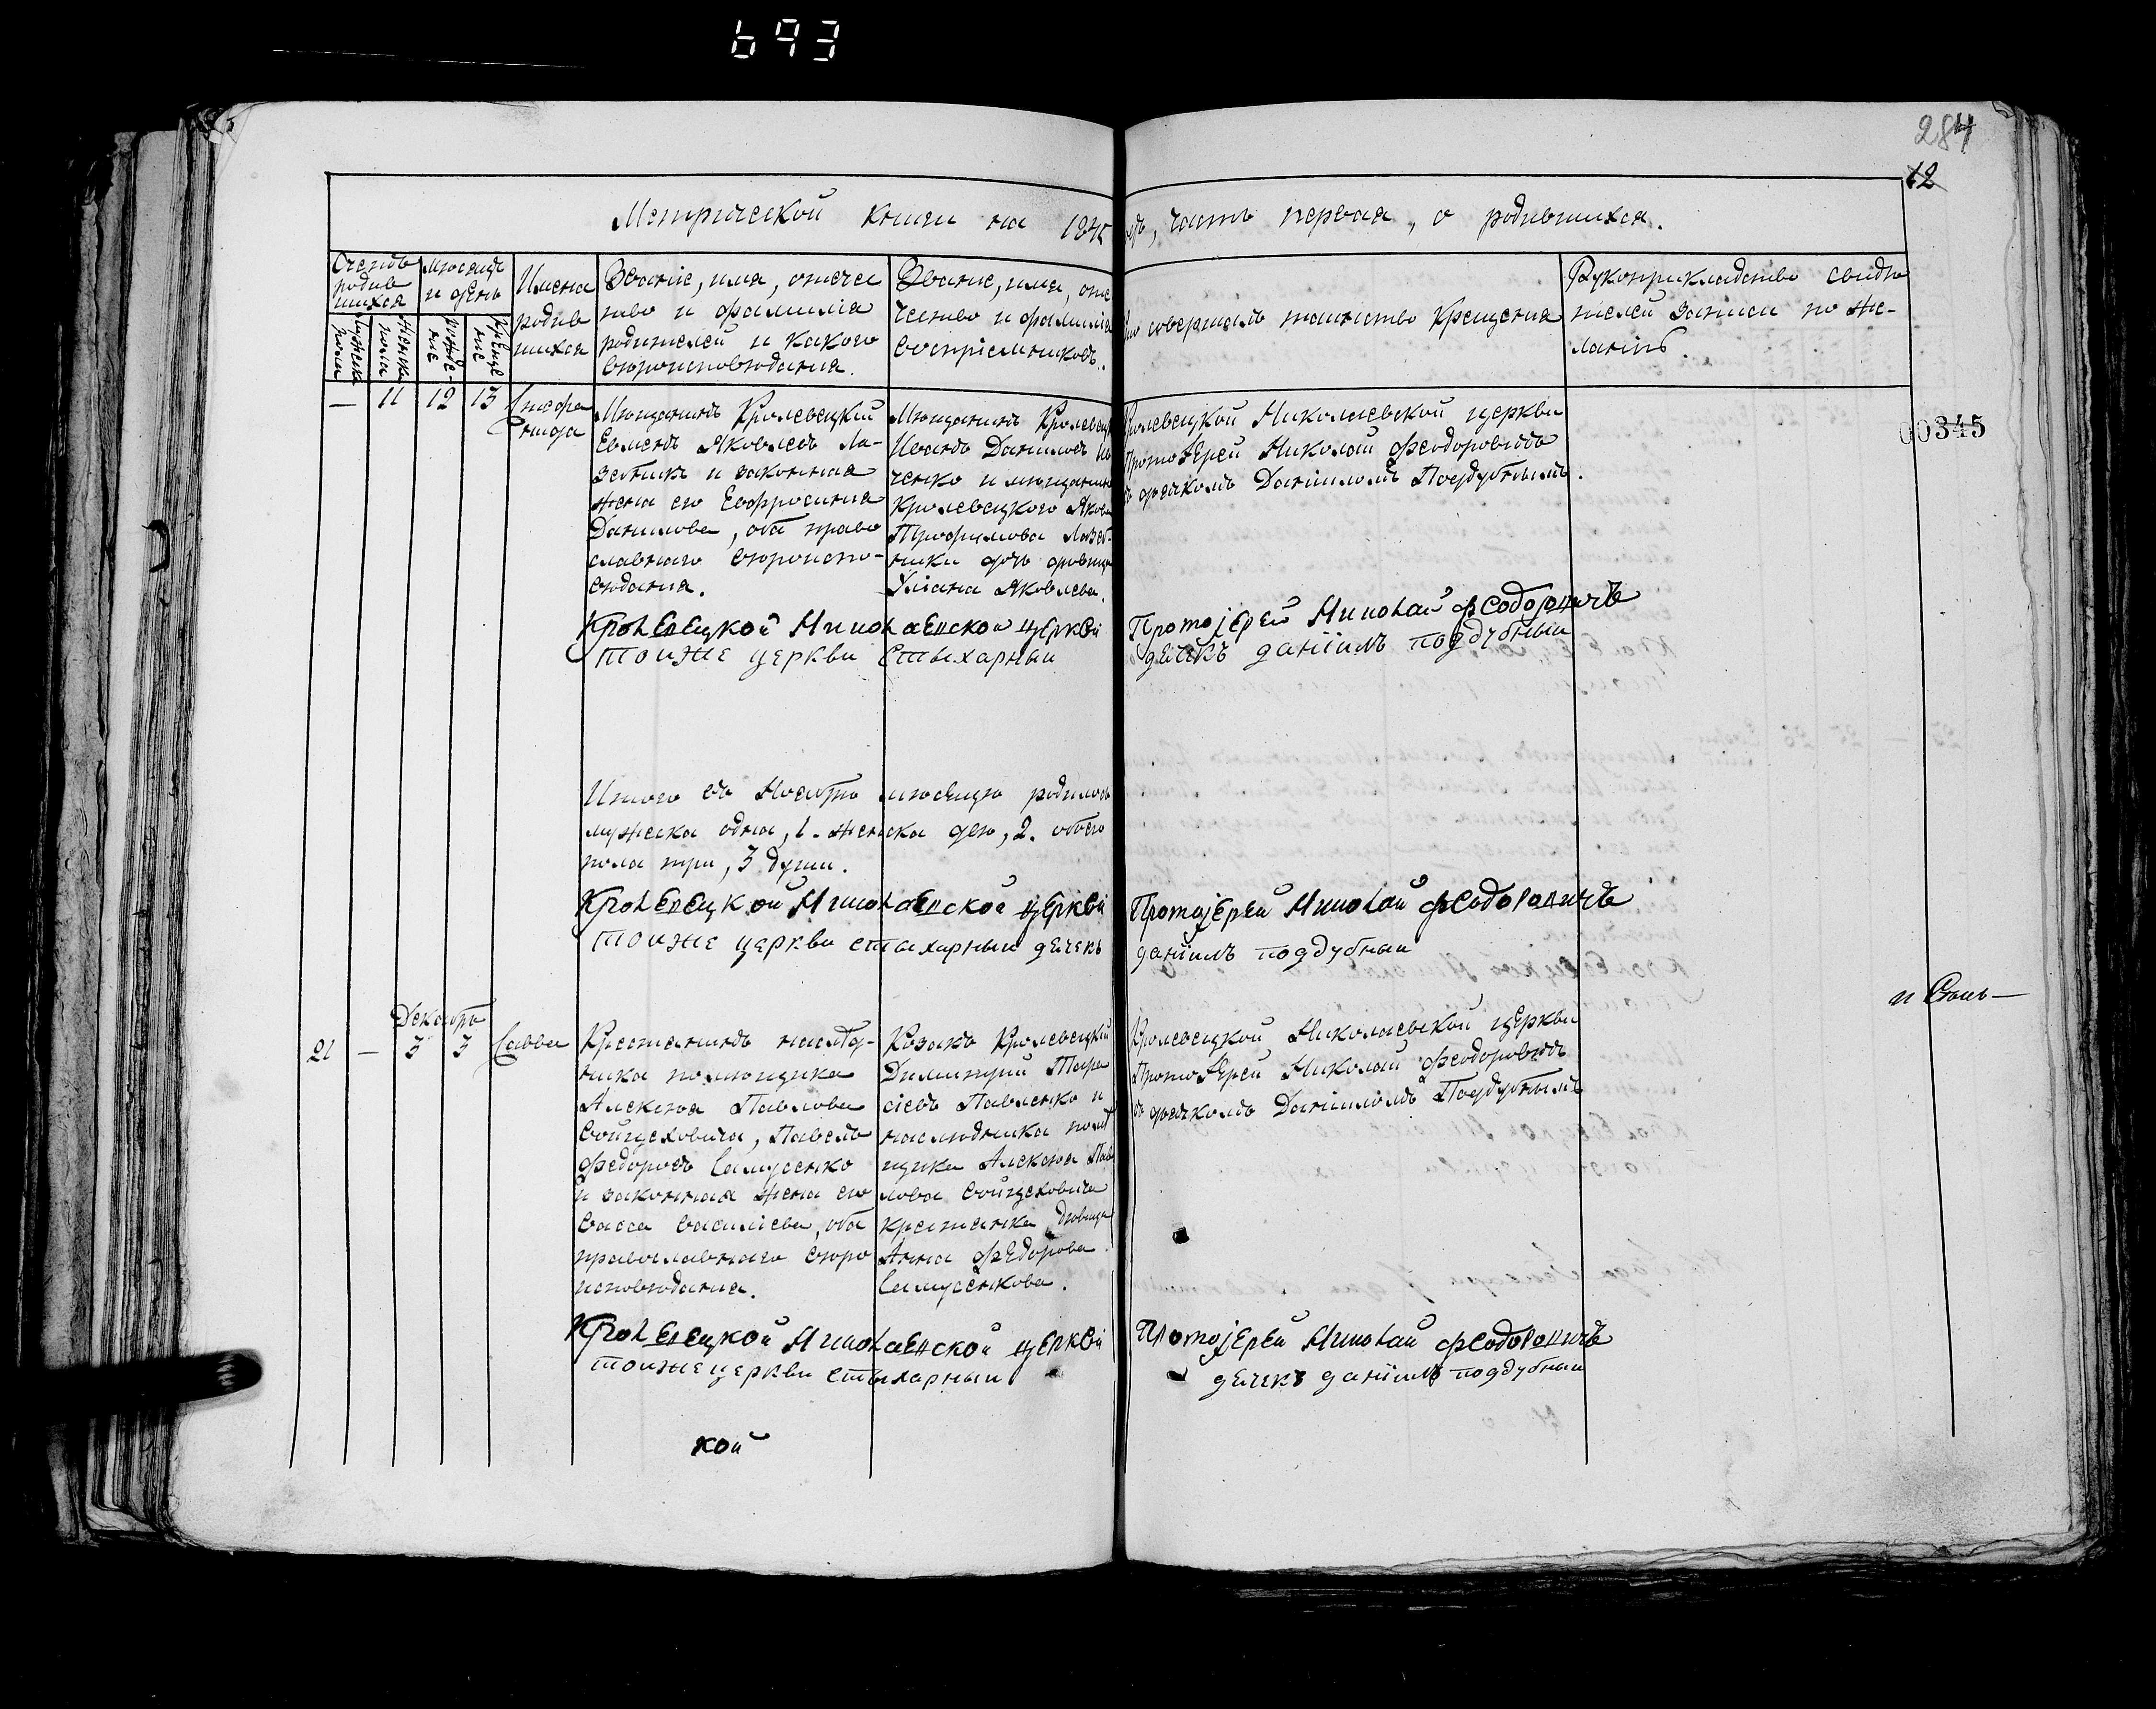 693
284
12
Метрической книги на 1845 годъ, часть первая, о родившихся.
Счетъ родив шихся
Мужеска пола
Женска пола
Мѣсяцъ и день
рожде- ние
креще ние
Имена родив шихся
Званіе, имя, отчес
тво и фамилія
родителей и какого
вѣроисповѣданія.
Званіе, имя, оте
чество и фамилія
воспріемниковъ.
Кто совершалъ таинство Крещенія
Рукоприкладство свидѣ
телей записи по же-
ланію.
00345
— 11 12 13
Мѣщанинъ Кролевецкій
Яковлевъ Ла-
зебникъ и законная
жена его Евфросинія
Данилова, оба право
славнаго вѣроиспо-
вѣданія.
Мѣщанинъ Кролевец
Иванъ Даниловъ
ченко и мѣщанина
Кролевецкаго Якова
Трофимова Лазеб-
ника дочь дѣвица
Уліана Яковлева.
Кролевецкой Николаевской церкви
ПротоІерей Николай Феодоровичъ
съ дьячкомъ Даніиломъ Поддубнымъ.
Кролевецкой Николаевской церкви Протоіерей Николай Феодоровичъ
тоиже церкви стыхарный дьячекъ даніилъ поддубный
Итого въ Ноябрѣ мѣсяцѣ родилось
мужеска одна, 1. женска двѣ, 2. обоего
пола три, 3 души.
Кролевецкой Николаевской церкви Протоіерей Николай Феодоровичъ
тоиже церкви стыхарный дьячекъ даніилъ поддубный
и Сынь—
Декабрь
21 — 3 3 Савва
Крестьянинъ наслѣд-
ника помѣщика
Алексѣя Павлова
Войцеховича, Павелъ
Федоровъ Самусенко
и законная жена его
Васса Васильева, оба
православнаго вѣро
исповѣданія.
Козакъ Кролевецкій
Димитрій Тара
сіевъ Павленко и
наслѣдника помѣ
щика Алексѣя Пав
лова Войцеховича
крестьянка дѣвица
Анна Федорова
Самусенкова.
Кролевецкой Николаевской церкви
ПротоІерей Николай Феодоровичъ
съ дьячкомъ Даніиломъ Поддубнымъ
Кролевецкой Николаевской церкви Протоіерей Николай Феодоровичъ
тоиже церкви стыхарный дьячекъ даніилъ поддубный
кой